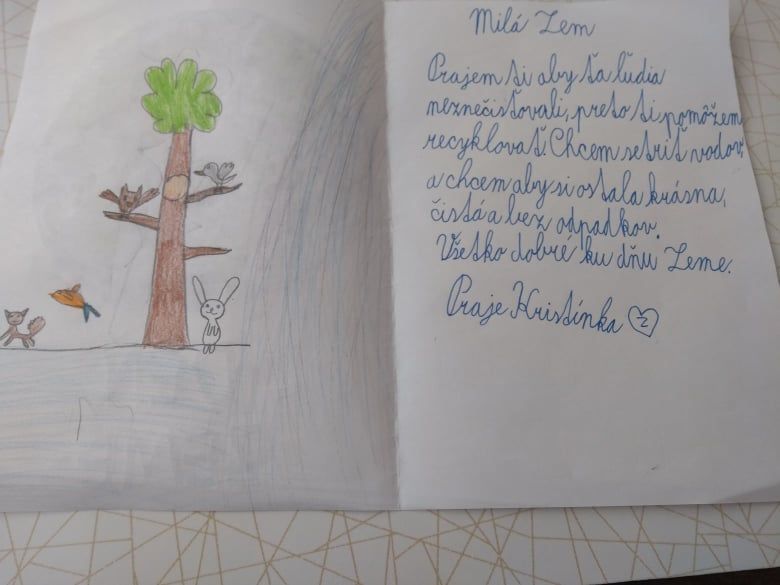 Milá Zem
Prajem ti aby ťa ľudia
neznečisťovali, preto ti pomôžem
recyklovať. Chcem setriť vodov,
a chcem aby si ostala krásna,
čistá a bez odpadkov.
Všetko dobré ku dňu Zeme.
Praje Kristínka
Z